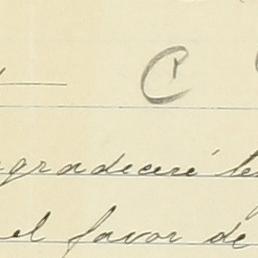 C
agradeceré te
el favor de